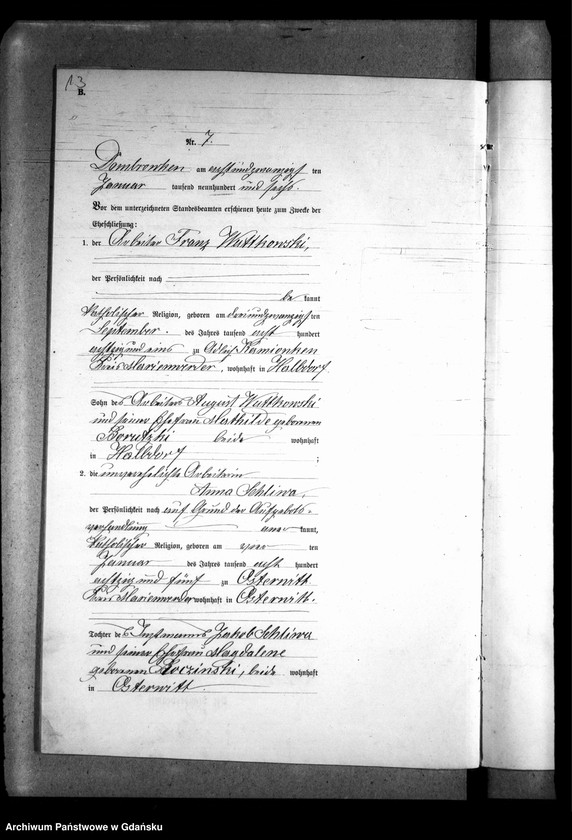 13
B.
Nr. 7.
Dombrowken am achtundzwanzigsten
Januar tausend neunhundert und sechs.
Vor dem unterzeichneten Standesbeamten erschienen heute zum Zwecke der
Eheschließung:
1. der Arbeiter Franz Wuttkowski,
der Persönlichkeit nach
be kannt
katholischer Religion, geboren am dreiundzwanzigsten
September des Jahres tausend acht hundert
achtzig und eins zu Adlig Kamionken
Kreis Marienwerder, wohnhaft in Halbdorf
Sohn des Arbeiters August Wuttkowski
und seiner Ehefrau Mathilde geborenen
beide wohnhaft
in Halbdorf ;
2. die unverehelichte Arbeiterin
Anna Schliwa,
der Persönlichkeit nach auf Grund der Aufgebots-
verhandlung aner kannt,
katholischer Religion, geboren am ten
Januar des Jahres tausend acht hundert
achtzig und fünf zu Osterwitt
Kreis Marienwerder wohnhaft in Osterwitt.
Tochter des Instmanns Jakob Schliwa
und seiner Ehefrau Magdalene
geborenen Roczinski, beide wohnhaft
in Osterwitt
Archiwum Państwowe w Gdańsku